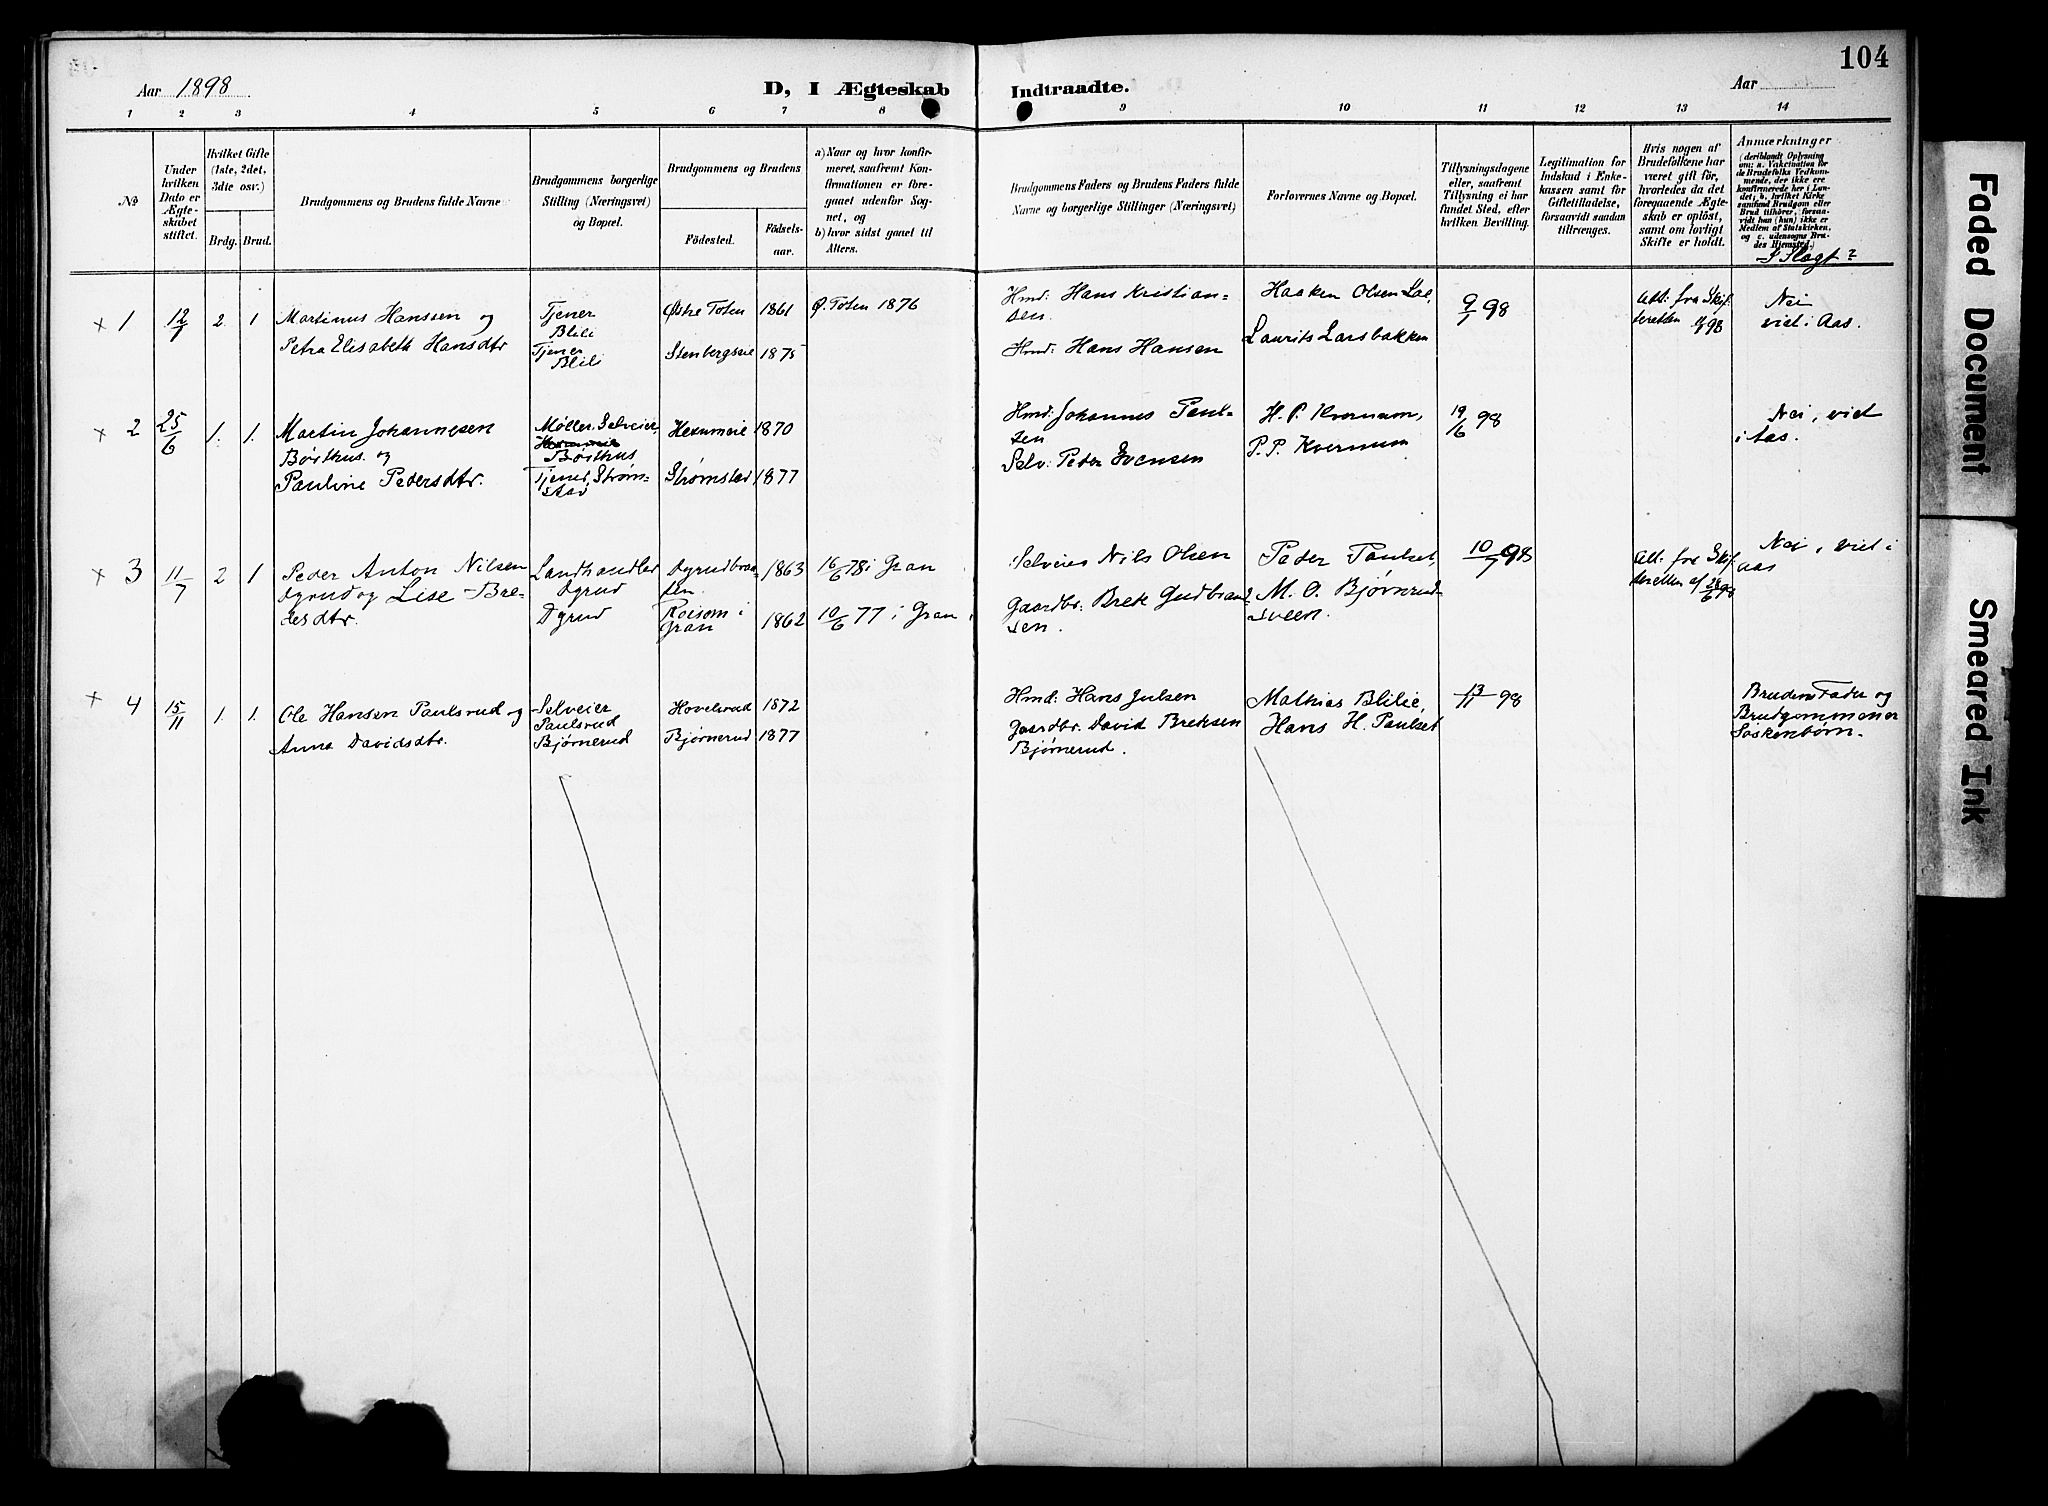 104
Aar 1898.
D, I Ægteskab Indtraadte.
Aar
1 2 3 4 5 6 7 8 9 10 11 12 13 14
No
Under hvilken Dato er Ægteskabet stiftet.
Hvilket Gifte (1ste, 2det, 3die osv.)
Brdg. Brud.
Brudgommens og Brudens fulde Navne
Brudgommens borgerlige Stilling (Næringsvei) og Bopæl.
Brudgommens og Brudens
Födested.
Födsels-aar.
a) Naar og hvor konfir-
meret, saafremt Kon-
firmationen er fore-
gaaet udenfor Sog-
net, og
b) hvor sidst gaaet til
Alters.
Brudgommens Faders og Brudens Faders fulde
Navne og borgerlige Stillinger (Næringsvei)
Forlovernes Navne og Bopæl.
Tillysningsdagene
eller, saafremt
Tillysning ei har
fundet Sted, efter
hvilken Bevilling.
Legitimation for
Indskud i Enke-
kassen samt for
Giftetilladelse,
forsaavidt saadan
tiltrænges.
Hvis nogen af
Brudefolkene har
været gift för,
hvorledes da det
foregaaende Ægte-
skab er oplöst,
samt om lovligt
Skifte er holdt.
Anmærkninger
(deriblandt Oplysning
om: a. Vakcination for
de Brudefolks Vedkom-
mende, der ikke ere
konfirmerede her i Lan-
det, b. hvilket Kirke-
samfund Brudgom eller
Brud tilhörer, forsaa-
vidt han (hun) ikke er
Medlem af Statskirken,
og c. udensogns Bru-
des Hjemsted.)
I Slagt?
x 1 12/7 2. 1
Martinus Hanssen og
Petra Elisabeth Hansdtr
Tjener
Blili
Tjener
Blili
Østre Toten 1861 Ø. Toten 1876
Stenbergseie 1875
Hmd: Hans Kristian-
sen.
Hmd: Hans Hansen
Haaken Olsen
Laurits Larsbakken
98
Att. fra Skif-
teretten 98
Nei
viet i Aas.
x 2 25/6 1. 1.
Martin Johannesen
Børthus. og
Pauline Pedersdtr.
Møller, Selveier,
Børthus
Tjener, Strøm-
stad
Hexumeie 1870
Strømstad 1877
Hmd: Johannes Paul-
sen
Selv: Peder Evensen
H. P. Kvernum,
P. P. Kvernum
19/6 98
Nei, viet
i Aas.
x 3 11/7 2 1
Peder Anton Nilsen
Dyrud og Lise Bre-
desdtr.
Landhandler
Dyrud
Dyrud
Dyrudbraa-
ten.
Roisom i
Gran
1863 16/6 78 i Gran
1862 10/6 77 i Gran
Selveier Nils Olsen
Gaardbr: Brede Gudbrand-
sen.
Peder Paulset,
M. O. Bjørnerud-
sveen.
10/7 98
Att. fra Skif-
teretten af 28/6 98
Nei, viet i
Aas
x 4 15/11 1. 1.
Ole Hansen Paulsrud og
Anna Davidsdtr.
Selveier
Paulsrud
Bjørnerud
Hovelsrud 1872
Bjørnerud 1877
Hmd: Hans Julsen
Gaardbr. David Bredesen
Bjørnerud.
Mathias Blilie,
Hans H. Paulset
13/11 98
Brudens Fader og
Brudgommen er
Søskenbørn.
Faded Document
Smeared Ink